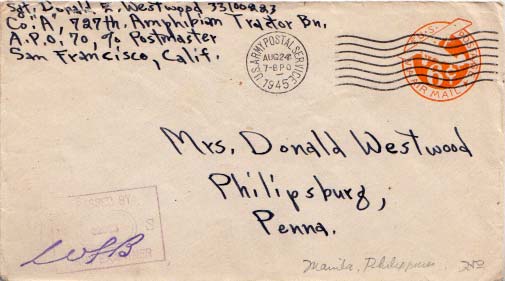 Sgt. Donald E. Westwood 33100283
Co "A", 727th. Amphibian Tractor Bn.
A.P.O. 70, % Postmaster
San Francisco, Calif.
U.S. ARMY POSTAL SERVICE
AUG 24
7-8 PO
1945
U.S. POSTAGE
VIA AIR MAIL
Mrs. Donald Westwood
Philipsburg,
Penna.
PASSED BY
S
WSB
Manila, Philippines